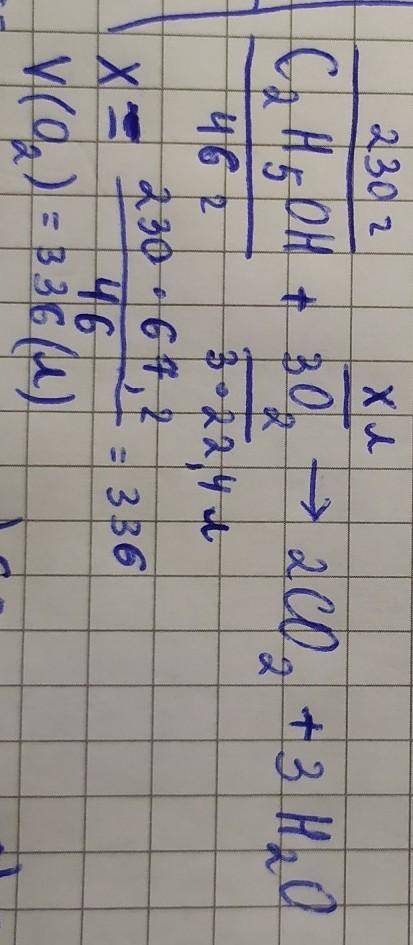 230 г x л
C₂H₅OH + 3O₂ → 2CO₂ + 3H₂O
46 г 3·22,4 л
x = 230·67,2 / 46 = 336
V(O₂) = 336 (л)